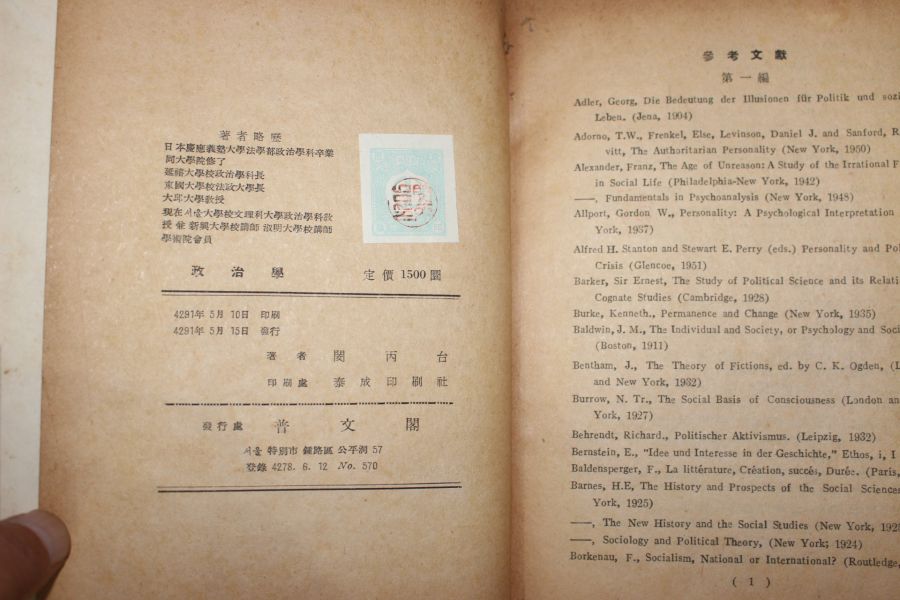 著者略歷
日本慶應義塾大學法學部政治學科卒業
同大學院修了
延禧大學校政治學科長
東國大學校法政大學長
大邱大學敎授
現在 서울大學校文理科大學政治學科敎
授 並 新興大學校講師 淑明大學校講師
學術院會員
政治學 定價 1500圜
4291年 5月 10日 印刷
4291年 5月 15日 發行
著者 閔丙台
印刷處 泰成印刷社
發行處 普文閣
서울 特別市 鍾路區 公平洞 57
登錄 4278. 6. 12 No. 570
參考文獻
第一編
Adler, Georg, Die Bedeutung der Illusionen für Politik und sozi
Leben. (Jena, 1904)
Adorno, T.W., Frenkel, Else, Levinson, Daniel J. and Sanford, R
vitt, The Authoritarian Personality (New York, 1950)
Alexander, Franz, The Age of Unreason: A Study of the Irrational F
in Social Life (Philadelphia-New York, 1942)
——, Fundamentals in Psychoanalysis (New York, 1948)
Allport, Gordon W., Personality: A Psychological Interpretation
York, 1937)
Alfred H. Stanton and Stewart E. Perry (eds.) Personality and Pol
Crisis (Glencoe, 1951)
Barker, Sir Ernest, The Study of Political Science and its Relati
Cognate Studies (Cambridge, 1928)
Burke, Kenneth., Permanence and Change (New York, 1935)
Baldwin, J. M., The Individual and Society, or Psychology and Soci
(Boston, 1911)
Bentham, J., The Theory of Fictions, ed. by C. K. Ogden, (L
and New York, 1932)
Burrow, N. Tr., The Social Basis of Consciousness (London an
York, 1927)
Behrendt, Richard., Politischer Aktivismus. (Leipzig, 1932)
Bernstein, E., "Idee und Interesse in der Geschichte," Ethos, i, I
Baldensperger, F., La littérature, Création, succés, Durée. (Paris,
Barnes, H.E, The History and Prospects of the Social Science
York, 1925)
——, The New History and the Social Studies (New York, 192
——, Sociology and Political Theory, (New York; 1924)
Borkenau, F., Socialism, National or International? (Routledge,
( 1 )